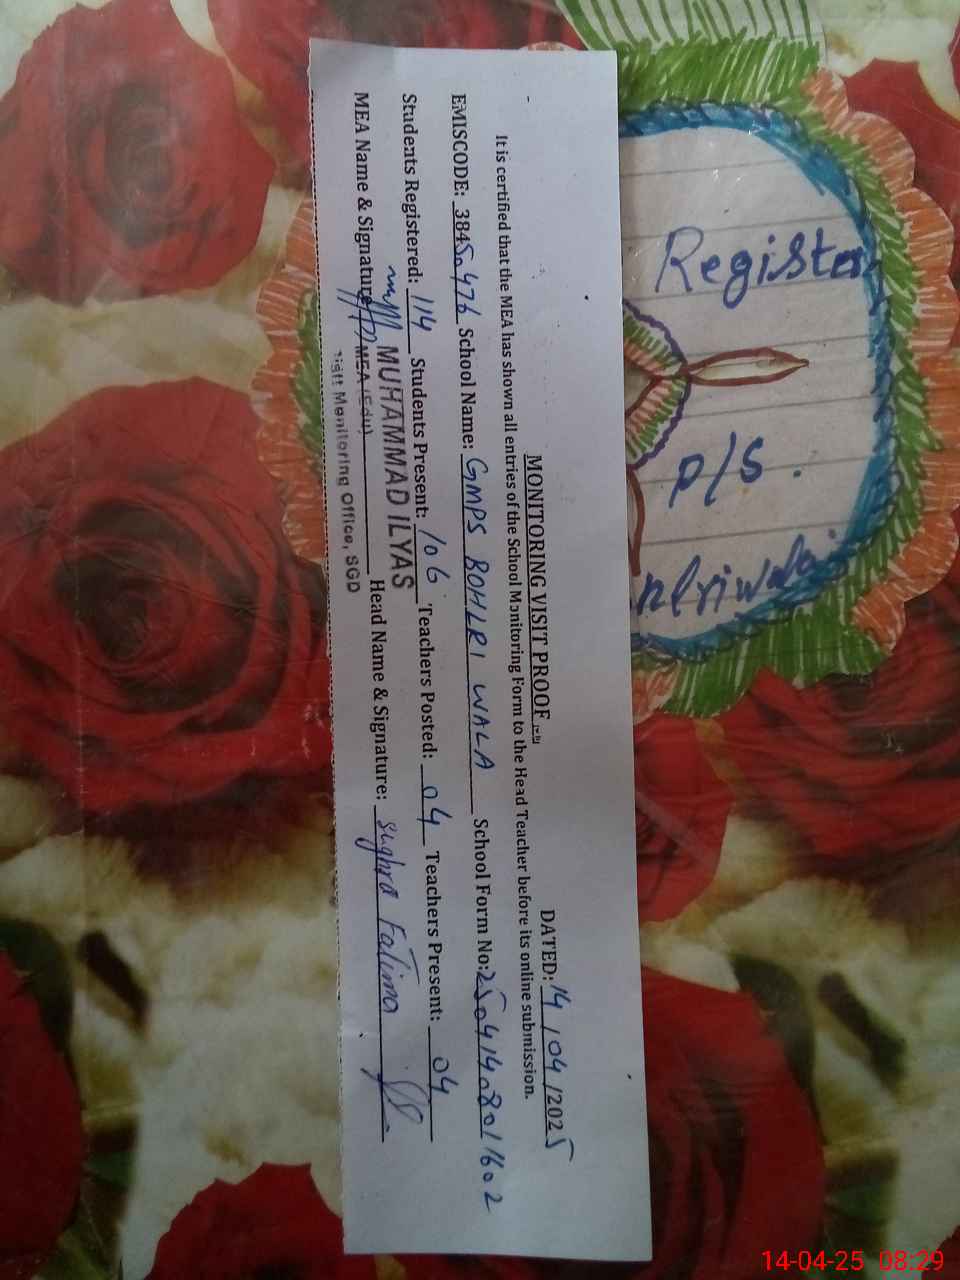 MONITORING VISIT PROOF
DATED: 14/04/2025
It is certified that the MEA has shown all entries of the School Monitoring Form to the Head Teacher before its online submission.
EMISCODE: 38450476 School Name: GMPS BOHLRI WALA School Form No: 2504140801602
Students Registered: 114 Students Present: 106 Teachers Posted: 04 Teachers Present: 04
MUHAMMAD ILYAS
MEA Name & Signature: MEA (Edu) Head Name & Signature: Sughra Fatima
Monitoring Office, SGD
Register
P/S
14-04-25 08:29